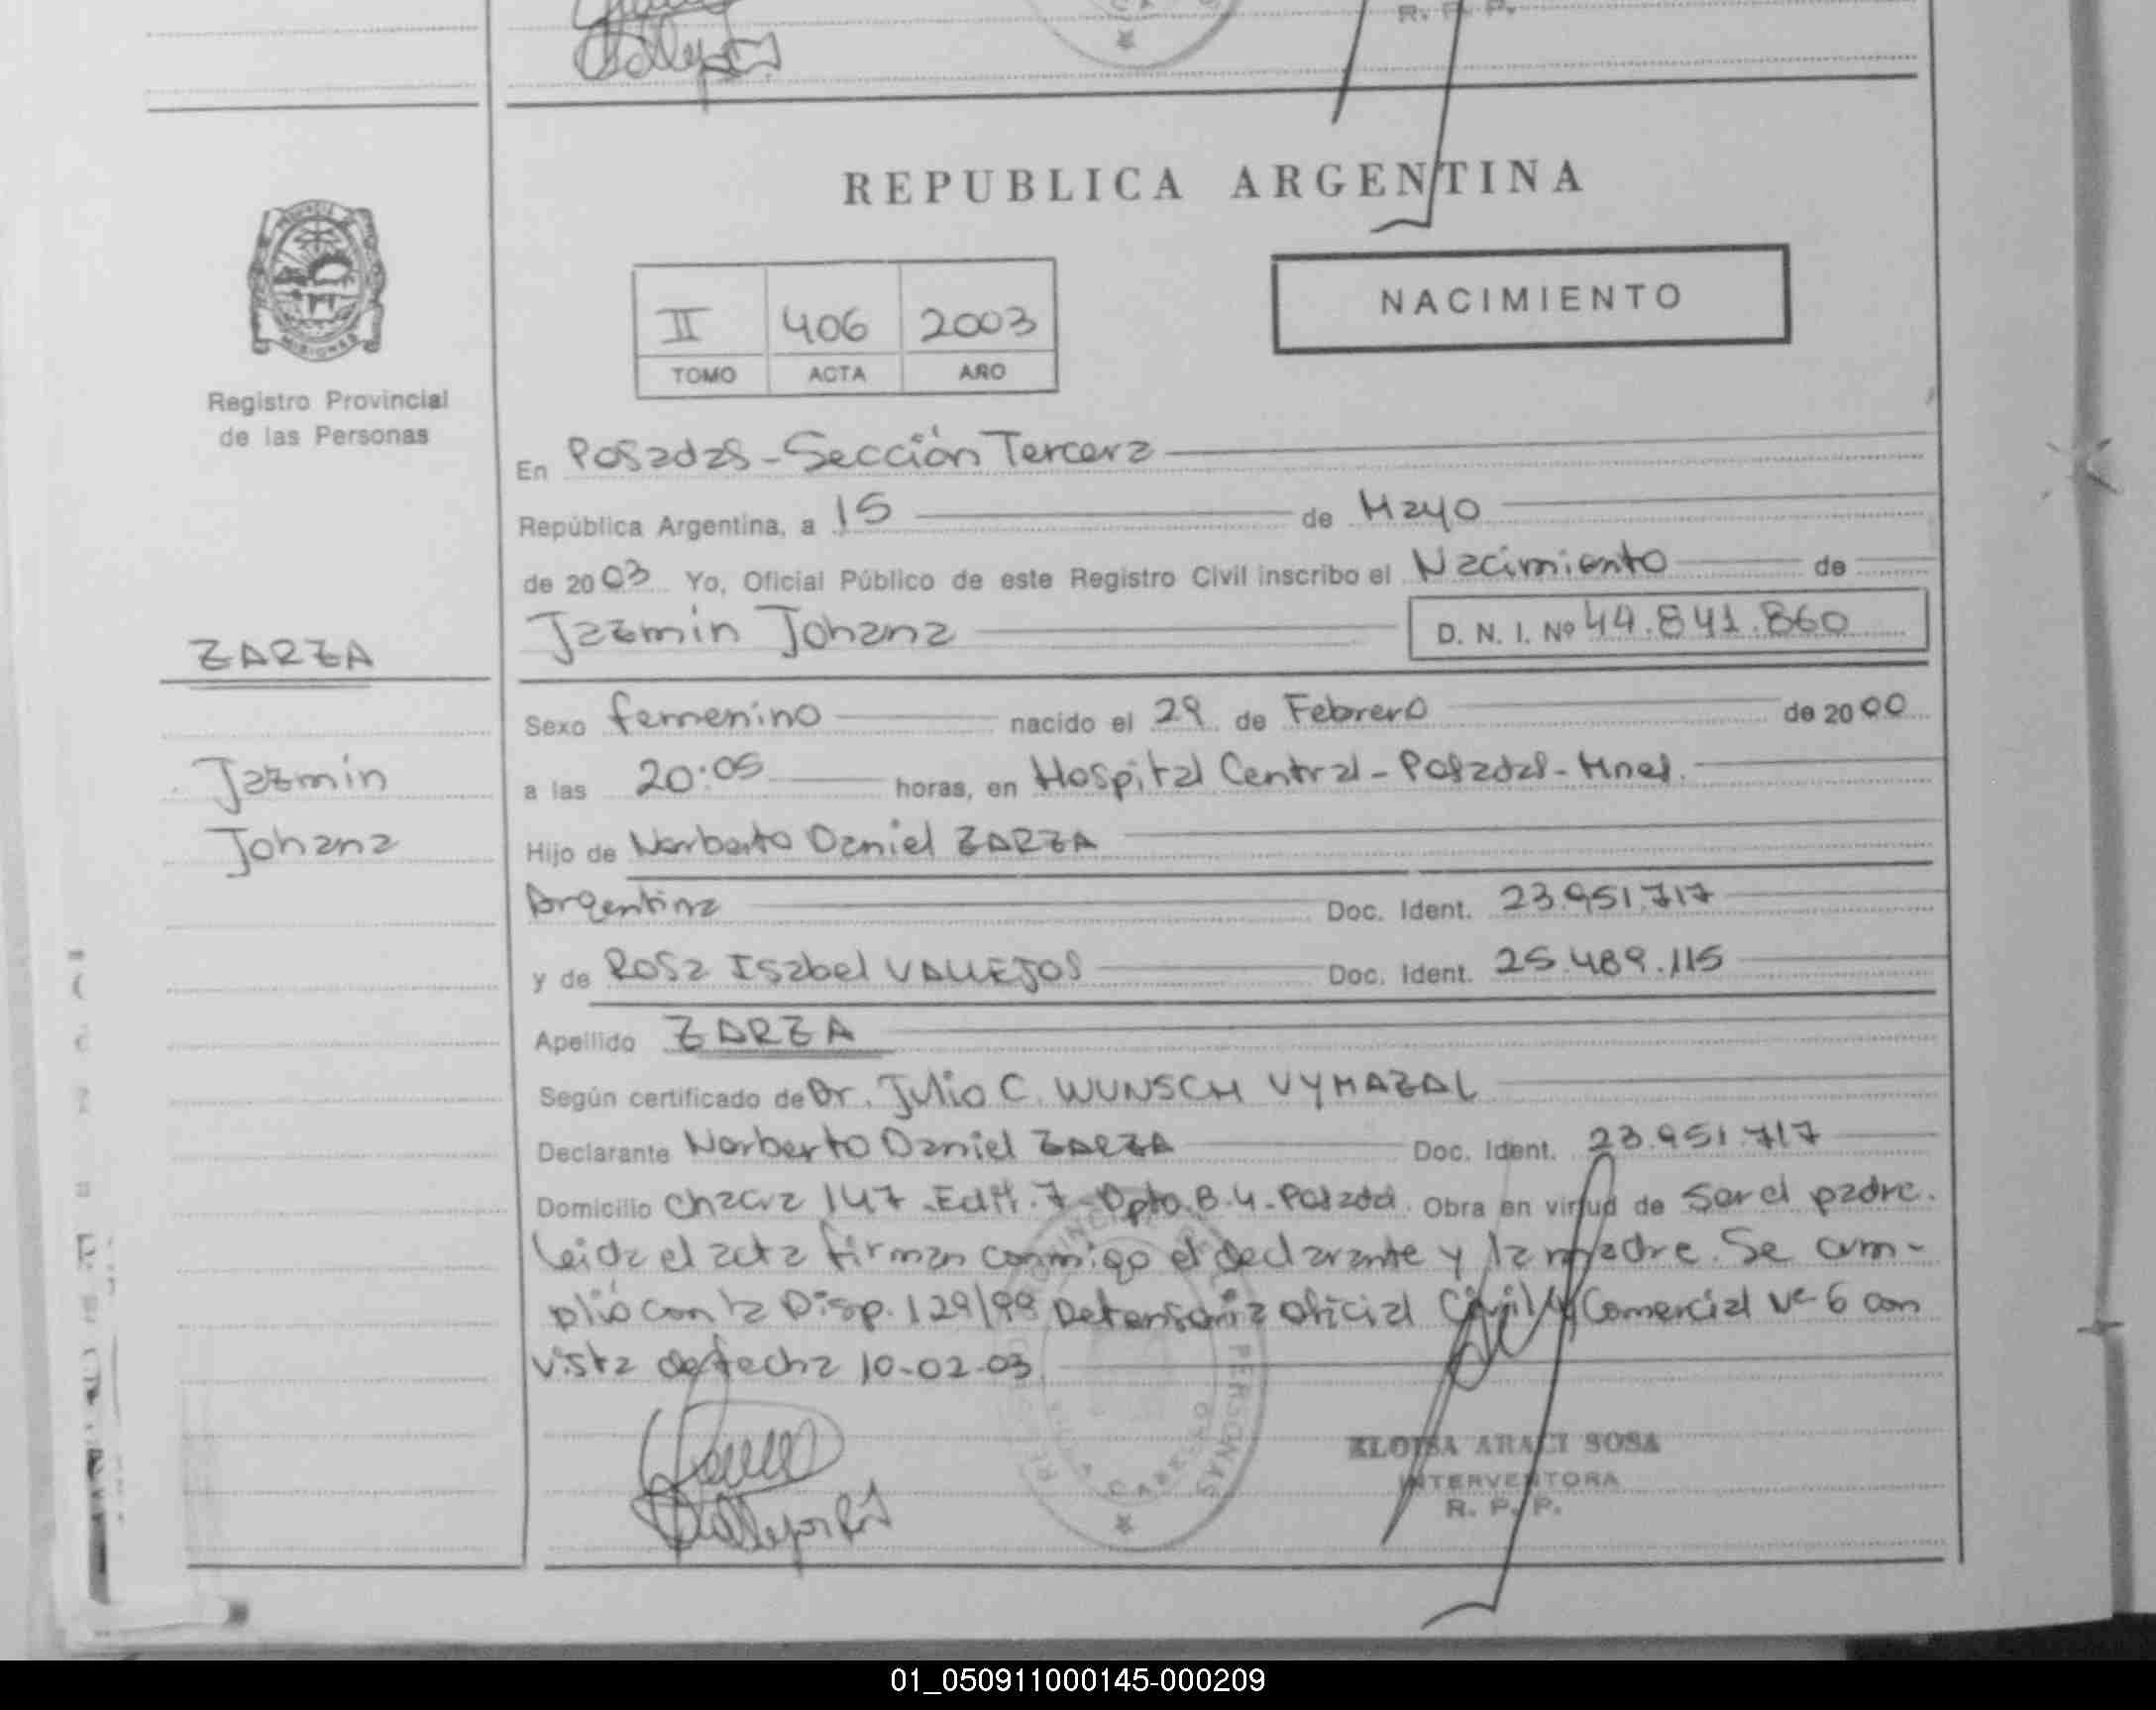 R. P. P.
REPUBLICA ARGENTINA
MISIONES
Registro Provincial
de las Personas
II 406 2003
TOMO ACTA AÑO
NACIMIENTO
En Posadas-Sección Tercera
República Argentina, a 15 de Mayo
de 2003 Yo, Oficial Público de este Registro Civil inscribo el Nacimiento de
Jazmin Johana D. N. I. Nº 44.841.860
ZARZA
Jazmin
Johana
Sexo femenino nacido el 29 de Febrero de 2000
a las 20:05 horas, en Hospital Central-Posadas-Mnes.
Hijo de Norberto Daniel ZARZA
Argentina Doc. Ident. 23.951.717
y de Rosa Isabel VALLEJOS Doc. Ident. 25.489.115
Apellido ZARZA
Según certificado de Dr. Julio C. WUNSCH VYMAZAL
Declarante Norberto Daniel ZARZA Doc. Ident. 23.951.717
Domicilio Chacra 147-Edif.7-Dpto.B.4-Posadas. Obra en virtud de Ser el padre.
Leida el acta firman conmigo el declarante y la madre. Se cum-
plió con la Disp. 129/99 Defensoria Oficial Civil y Comercial Nº 6 con
vista de fecha 10-02-03
ELOISA ARACI SOSA
INTERVENTORA
R. P. P.
PERSONAS
01_050911000145-000209